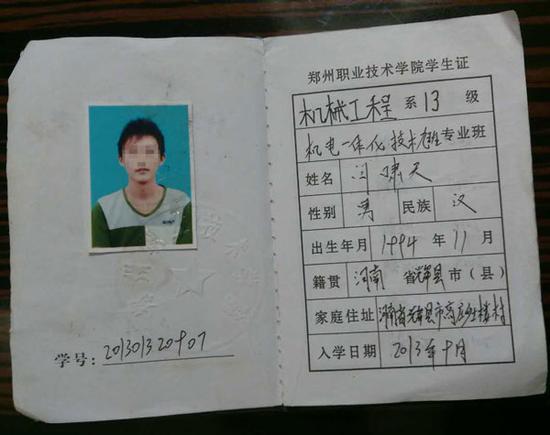 学号：2013013 20907
郑州职业技术学院学生证
机械工程 系 13 级
机电一体化技术 专业 班
姓名 闫啸天
性别 男 民族 汉
出生年月 1994 年 11 月
籍贯 河南 省 辉县 市（县）
家庭住址 河南省辉县市 楼村
入学日期 2013年9月